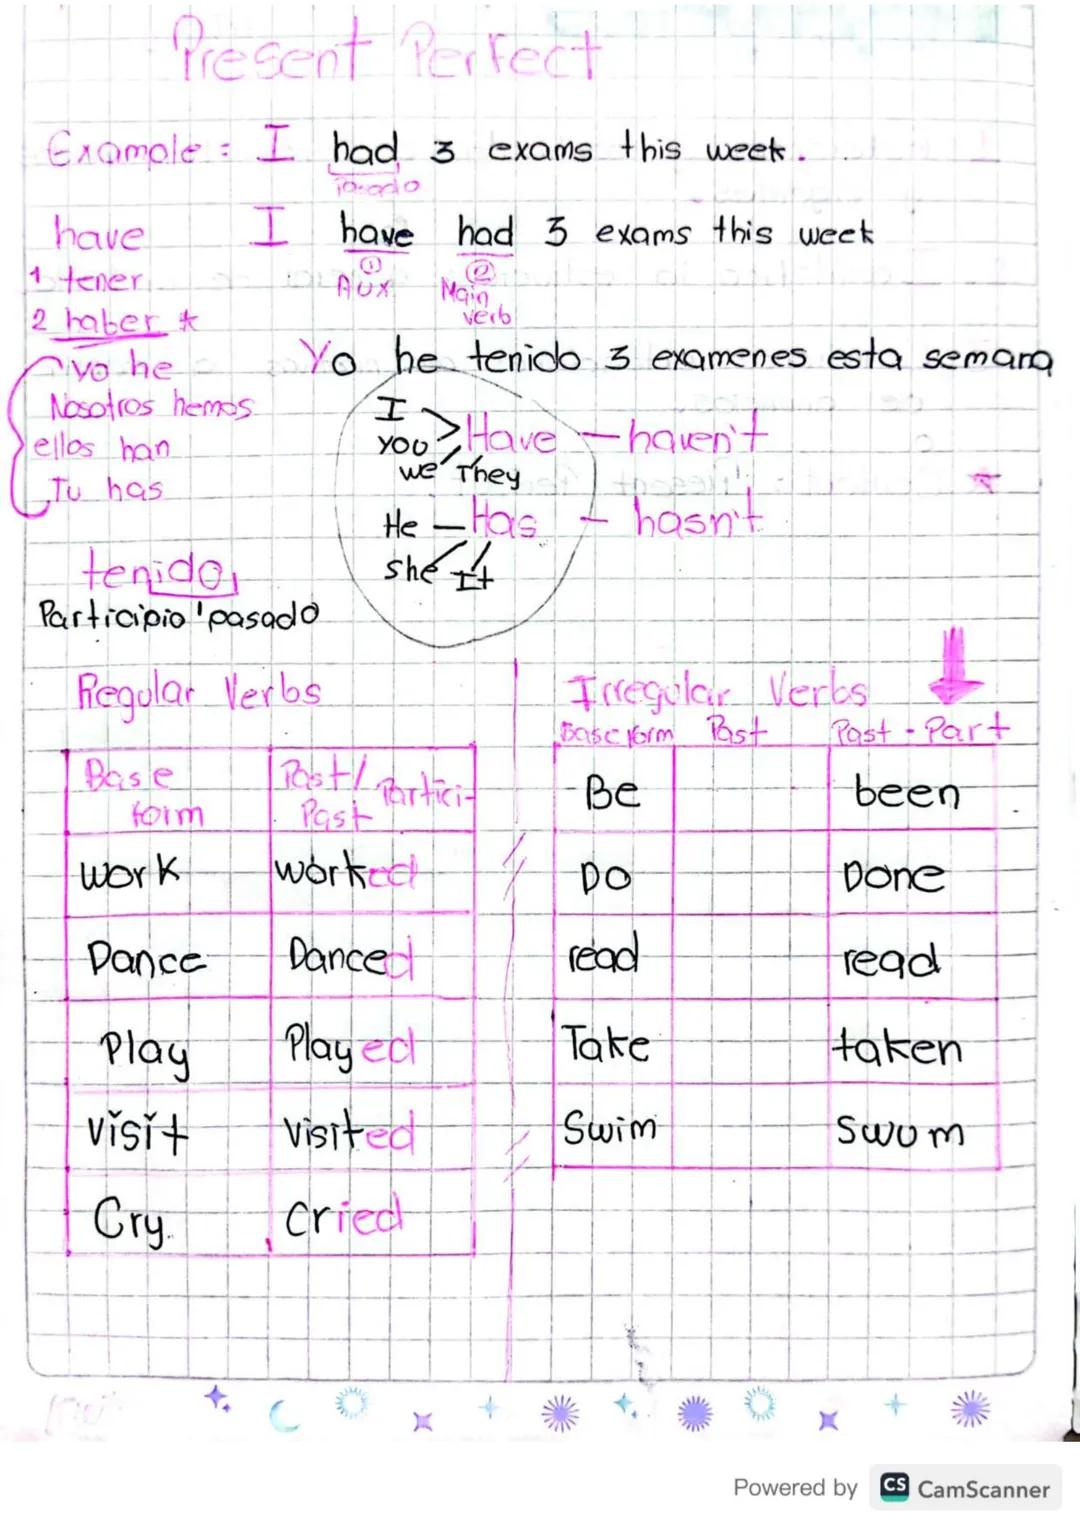 Present Perfect
Example: I had 3 exams this week.
Pasado
have I have had 3 exams this week
1 tener
① Aux ② Main verb
2 haber *
yo he
Yo he tenido 3 examenes esta semana
Nosotros hemos
ellos han
Tu has
I
you > Have — haven't
we They
He — Has — hasn't
she It
tenido
Participio pasado
Regular Verbs
Base form Past/ Past Partici-
work worked
Dance Danced
Play Played
visit visited
Cry. Cried
Irregular Verbs
Base form Past Past - Part
Be been
Do Done
read read
Take taken
Swim Swum
Powered by CS CamScanner